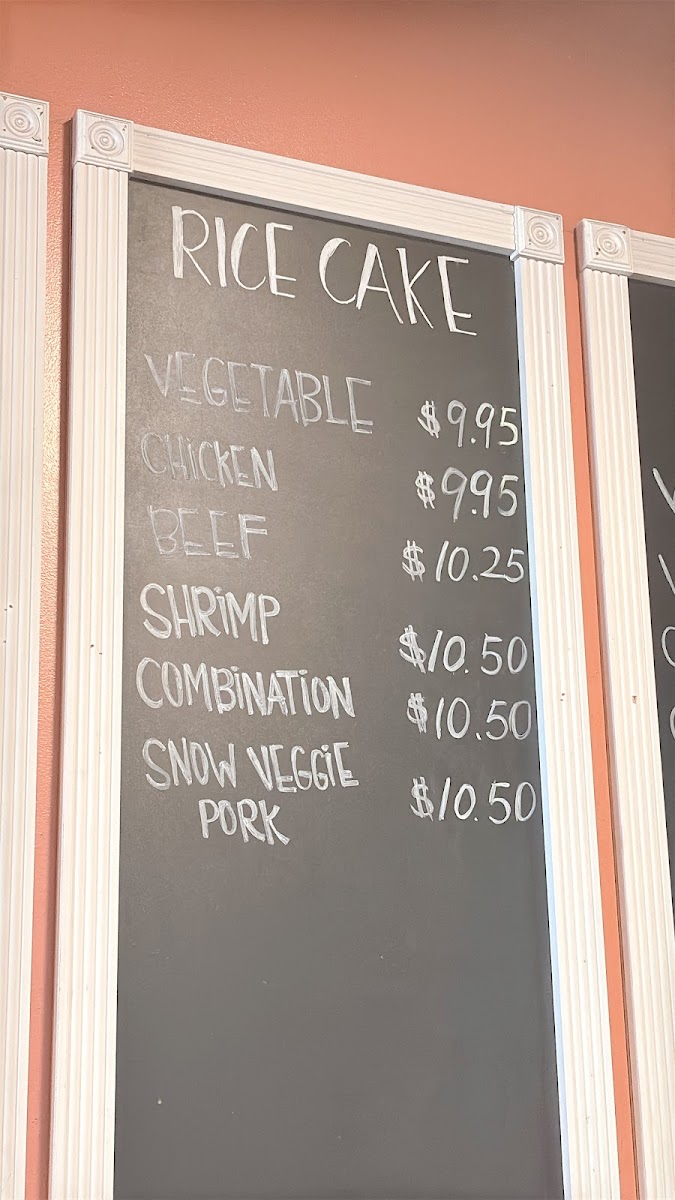 RICE CAKE
VEGETABLE $9.95
CHICKEN $9.95
BEEF $10.25
SHRIMP $10.50
COMBINATION $10.50
SNOW VEGGIE
PORK $10.50